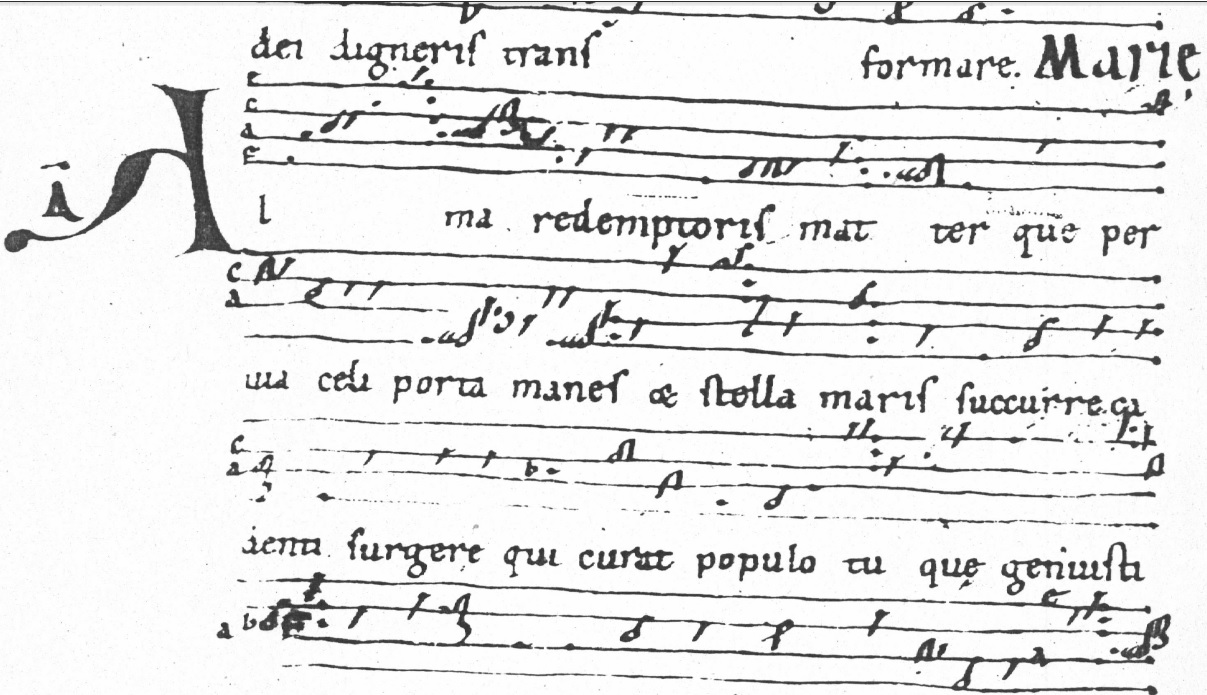 dei digneris trans formare. Marie
A Al ma redemptoris mat ter que per
uia celi porta manes & stella maris succurre ca
denti surgere qui curat populo tu que genuisti